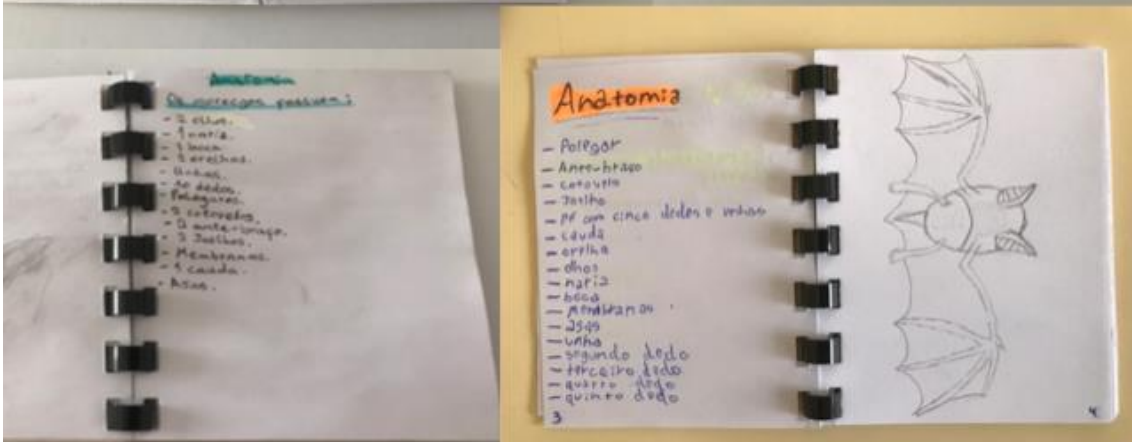 Anatomia
Os morcegos possuem:
- 2 olhos.
- 1 nariz.
- 1 boca.
- 2 orelhas.
- Unhas.
- 10 dedos.
- Polegares.
- 2 cotovelos.
- 2 ante-braço.
- 2 Joelhos.
- Membranas.
- 1 cauda.
- Asas.
Anatomia
- Polegar
- Antebraço
- cotovelo
- Joelho
- pé com cinco dedos e unhas
- cauda
- orelha
- olhos
- nariz
- boca
- membranas
- asas
- unha
- segundo dedo
- terceiro dedo
- quarto dedo
- quinto dedo
3
4